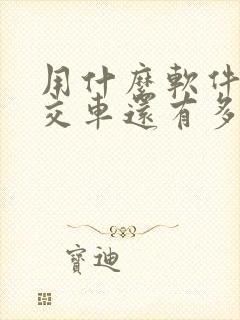 用什麼軟件
交車還有多
寶迪